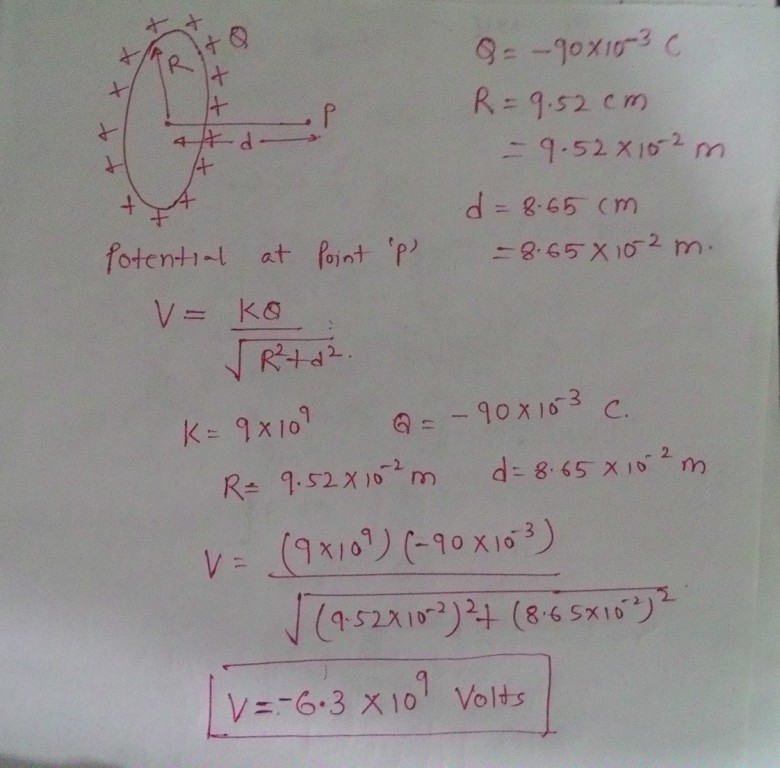 + + + + + + + + + + + + + + +
Q
R
P
d
Q = -90×10⁻³ C
R = 9.52 cm
= 9.52 × 10⁻² m
d = 8.65 cm
= 8.65 × 10⁻² m.
Potential at Point 'P'
V = KQ / √R²+d².
K = 9×10⁹ Q = -90×10⁻³ C.
R = 9.52×10⁻² m d = 8.65 × 10⁻² m
V = (9×10⁹) (-90×10⁻³) / √(9.52×10⁻²)² + (8.65×10⁻²)²
V = -6.3 × 10⁹ Volts